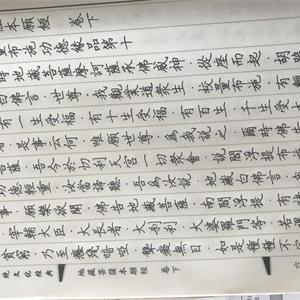 本願經 卷下
量布施功德緣品第十
時地藏菩薩摩訶薩承佛威神.從座而起.胡跪
白佛言.世尊.我觀業道眾生.校量布施.有
有一生受福.有十生受福.有百生.千生受
者是事云何.唯願世尊.為我說之.爾時佛
菩薩.吾今於忉利天宮一切眾會.說閻浮提布
功德輕重.汝當諦聽.吾為汝說.地藏白佛言
事.願樂欲聞.佛告地藏菩薩.南閻浮提.有
宰輔大臣.大長者.大剎利.大婆羅門等.若
貧窮.乃至癃殘瘖瘂.聾癡無目.如是種種不
統文化經典 地藏菩薩本願經 卷下 六